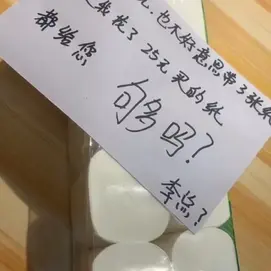 也不好意思带了3张纸
我找了25元买的纸
都给您
够多吗?
李总?